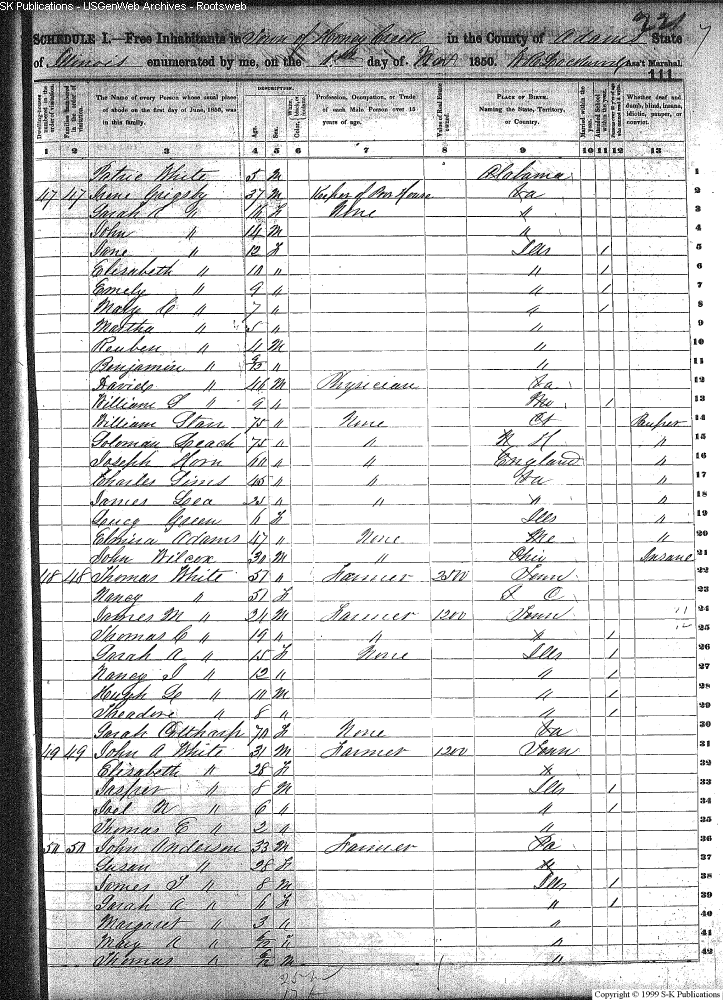 SK Publications - USGenWeb Archives - Rootsweb
221
SCHEDULE I.—Free Inhabitants in Town of Honey Creek in the County of Adams State
of Illinois enumerated by me, on the 8th day of Nov 1850. Ass't Marshal.
111
Dwelling-houses numbered in the order of visitation.
Families numbered in the order of visitation.
The Name of every Person whose usual place of abode on the first day of June, 1850, was in this family.
DESCRIPTION.
Age.
Sex.
White, black, or mulatto.
Profession, Occupation, or Trade of each Male Person over 15 years of age.
Value of Real Estate owned.
PLACE OF BIRTH. Naming the State, Territory, or Country.
Married within the year.
Attended School within the year.
Whether deaf and dumb, blind, insane, idiotic, pauper, or convict.
1 2 3 4 5 6 7 8 9 10 11 12 13
White 5 M Alabama 1
47 47 Grigsby 37 M Keeper of Poor House Va 2
Sarah 16 F None " 3
John " 14 M " 4
Jane " 12 F Ills 1 5
Elisabeth " 10 " " 1 6
Emely " 9 " " 1 7
Mary C " 7 " " 1 8
Martha " 5 " " 9
Reuben " 4 M " 10
Benjamin " " " 11
David " 46 M Physician Va 12
William " 9 " Mo 1 13
William Starr 75 " None Ct Pauper 14
Soloman Leach 75 " " N H " 15
Joseph Horn 60 " " England " 16
Charles Sims 45 " " Va " 17
James Lea 25 " " " " 18
Green 6 F Ills " 19
Elmira Adams 47 " None Me " 20
John Wilcox 30 M " Ohio Insane 21
48 48 Thomas White 57 " Farmer 2500 Tenn 22
Nancy " 51 F S C 23
James M " 24 M Farmer 1200 Tenn 24
Thomas C " 19 " " " 1 25
Sarah A " 15 F None Ills 1 26
Nancy J " 12 " " 1 27
Hugh L " 10 M " 1 28
Theadore " 8 " " 1 29
Sarah Coltharp 70 F None Va 30
49 49 John A White 31 M Farmer 1200 Tenn 31
Elisabeth " 28 F " 32
Jasper " 8 M Ills 1 33
Joel N " 6 " " 1 34
Thomas E " 2 " " 35
50 50 John Anderson 33 M Farmer Pa 36
Susan " 28 F " 37
James T " 8 M Ills 1 38
Sarah A " 6 F " 1 39
Margaret " 3 " " 40
Mary A " " " 41
Thomas " M " 42
Copyright © 1999 S-K Publications